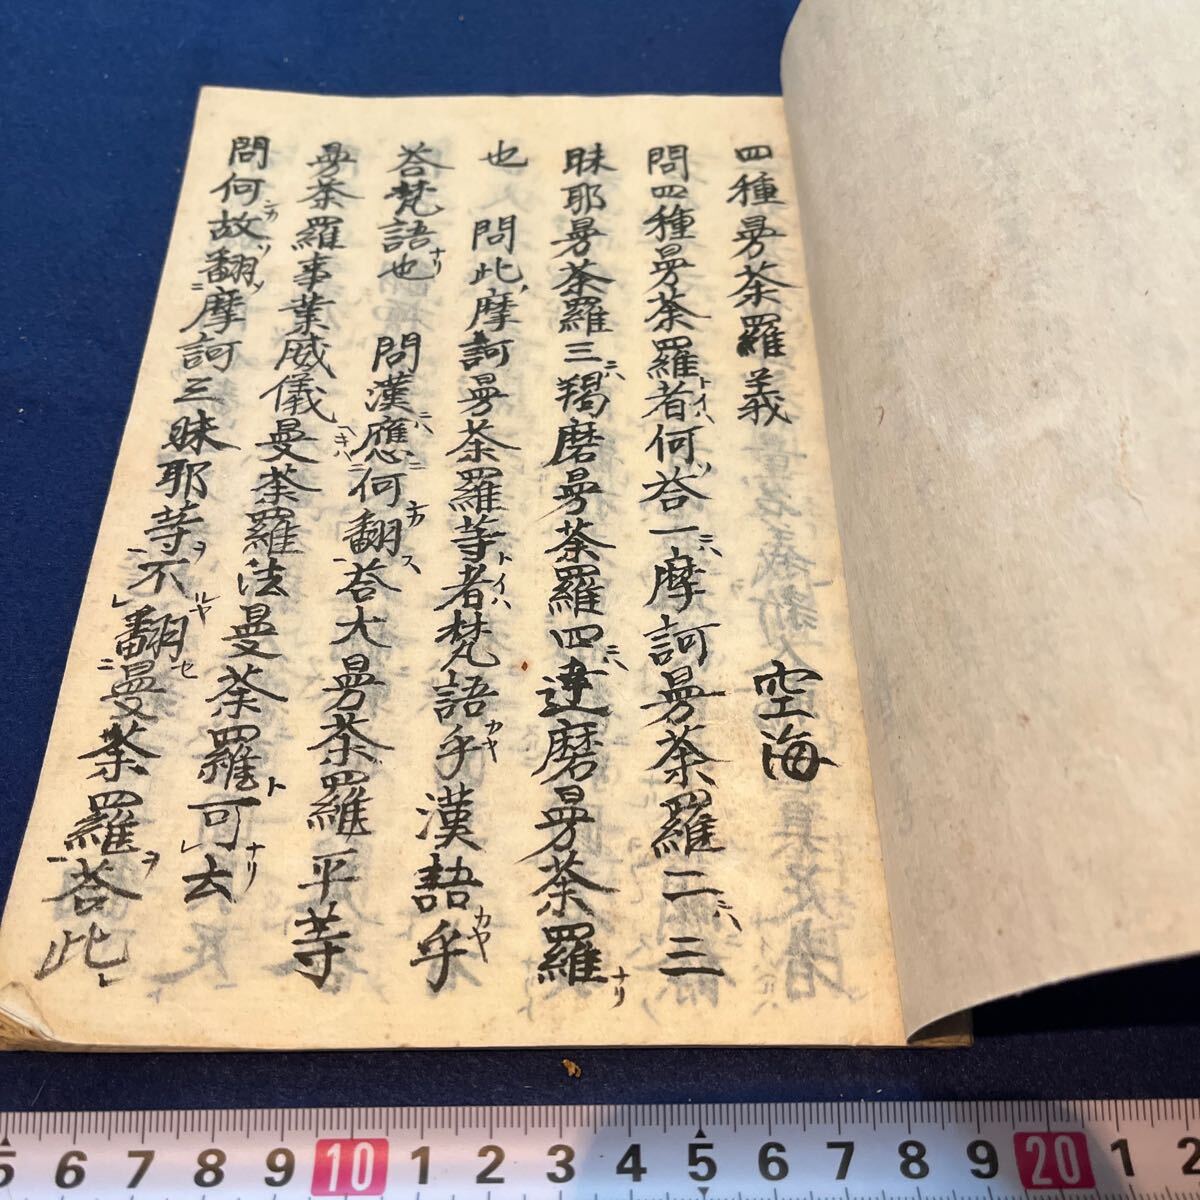 四種曼荼羅義　空海
問四種曼荼羅者何荅一摩訶曼荼羅二三
昧耶曼荼羅三羯磨曼荼羅四達磨曼荼羅
也　問此摩訶曼荼羅等者梵語乎漢語乎
荅梵語也　問漢應何翻荅大曼荼羅平等
曼荼羅事業威儀曼荼羅法曼荼羅可云
問何故翻摩訶三昧耶等不翻曼荼羅荅此
5 6 7 8 9 10 1 2 3 4 5 6 7 8 9 20 1 2